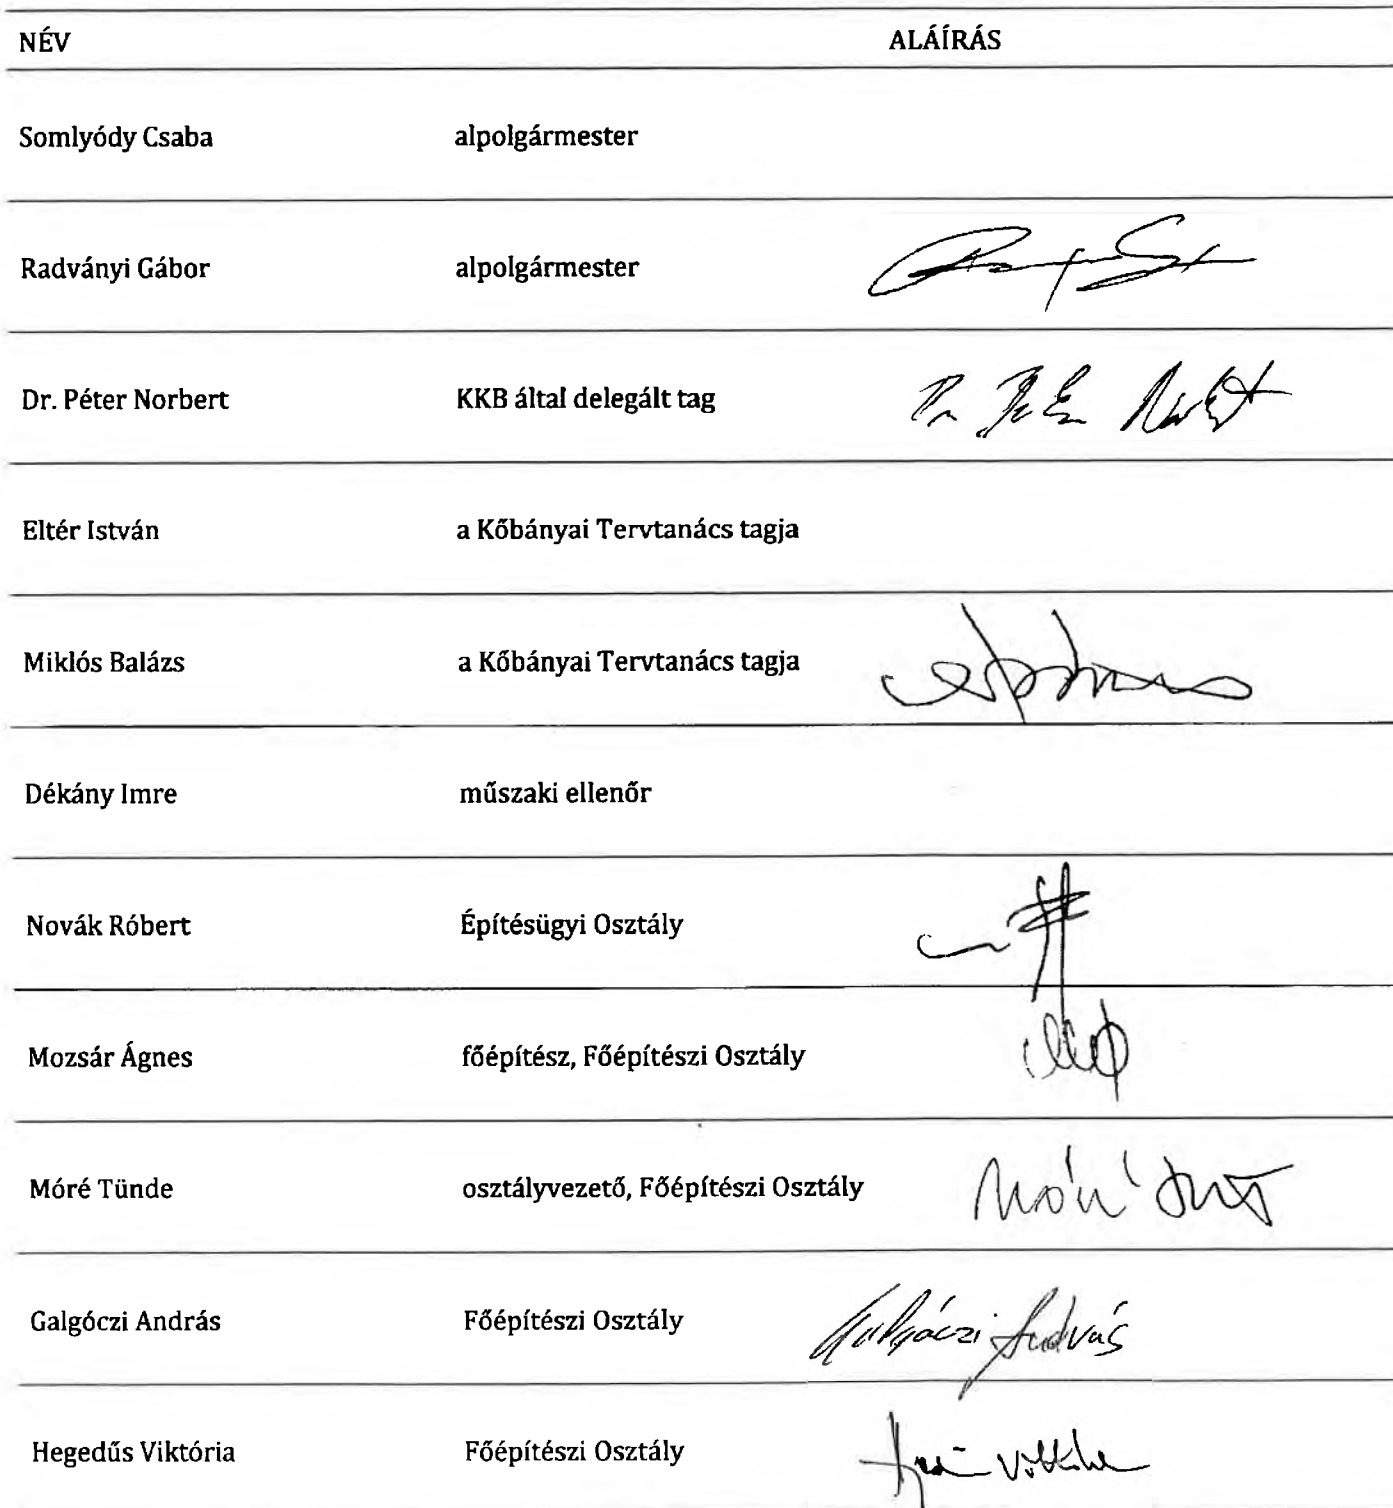 NÉV ALÁÍRÁS
Somlyódy Csaba alpolgármester
Radványi Gábor alpolgármester
Dr. Péter Norbert KKB által delegált tag
Eltér István a Kőbányai Tervtanács tagja
Miklós Balázs a Kőbányai Tervtanács tagja
Dékány Imre műszaki ellenőr
Novák Róbert Építésügyi Osztály
Mozsár Ágnes főépítész, Főépítészi Osztály
Móré Tünde osztályvezető, Főépítészi Osztály
Galgóczi András Főépítészi Osztály Galgóczi András
Hegedűs Viktória Főépítészi Osztály